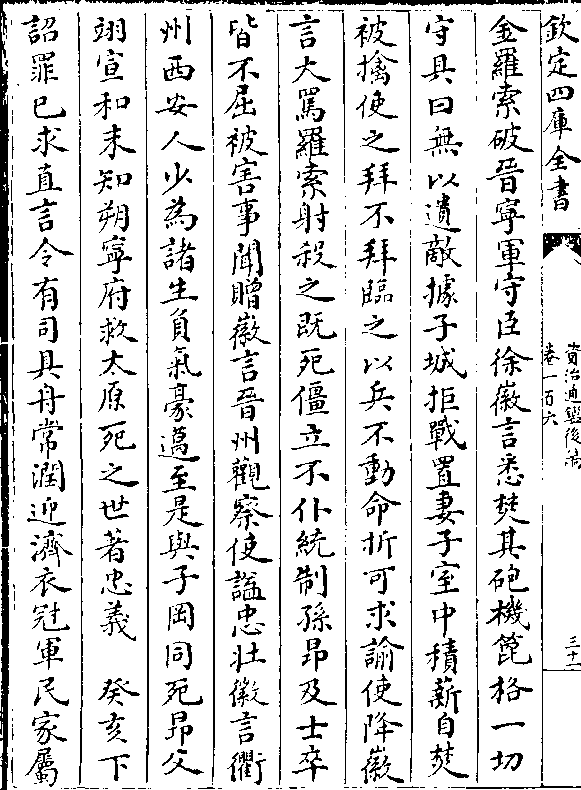 欽定四庫全書
資治通鑑後編
卷一百六
三十一
金羅索破晉寧軍守臣徐徽言悉焚其砲機篦格一切
守具曰無以遺敵據子城拒戰置妻子室中積薪自焚
被擒使之拜不拜臨之以兵不動命折可求諭使降徽
言大罵羅索射殺之既死僵立不仆統制孫昂及士卒
皆不屈被害事聞贈徽言晉州觀察使諡忠壯徽言衢
州西安人少為諸生負氣豪邁至是與子岡同死昂父
翊宣和末知朔寧府救太原死之世著忠義　癸亥下
詔罪已求直言令有司具舟常潤迎濟衣冠軍民家屬